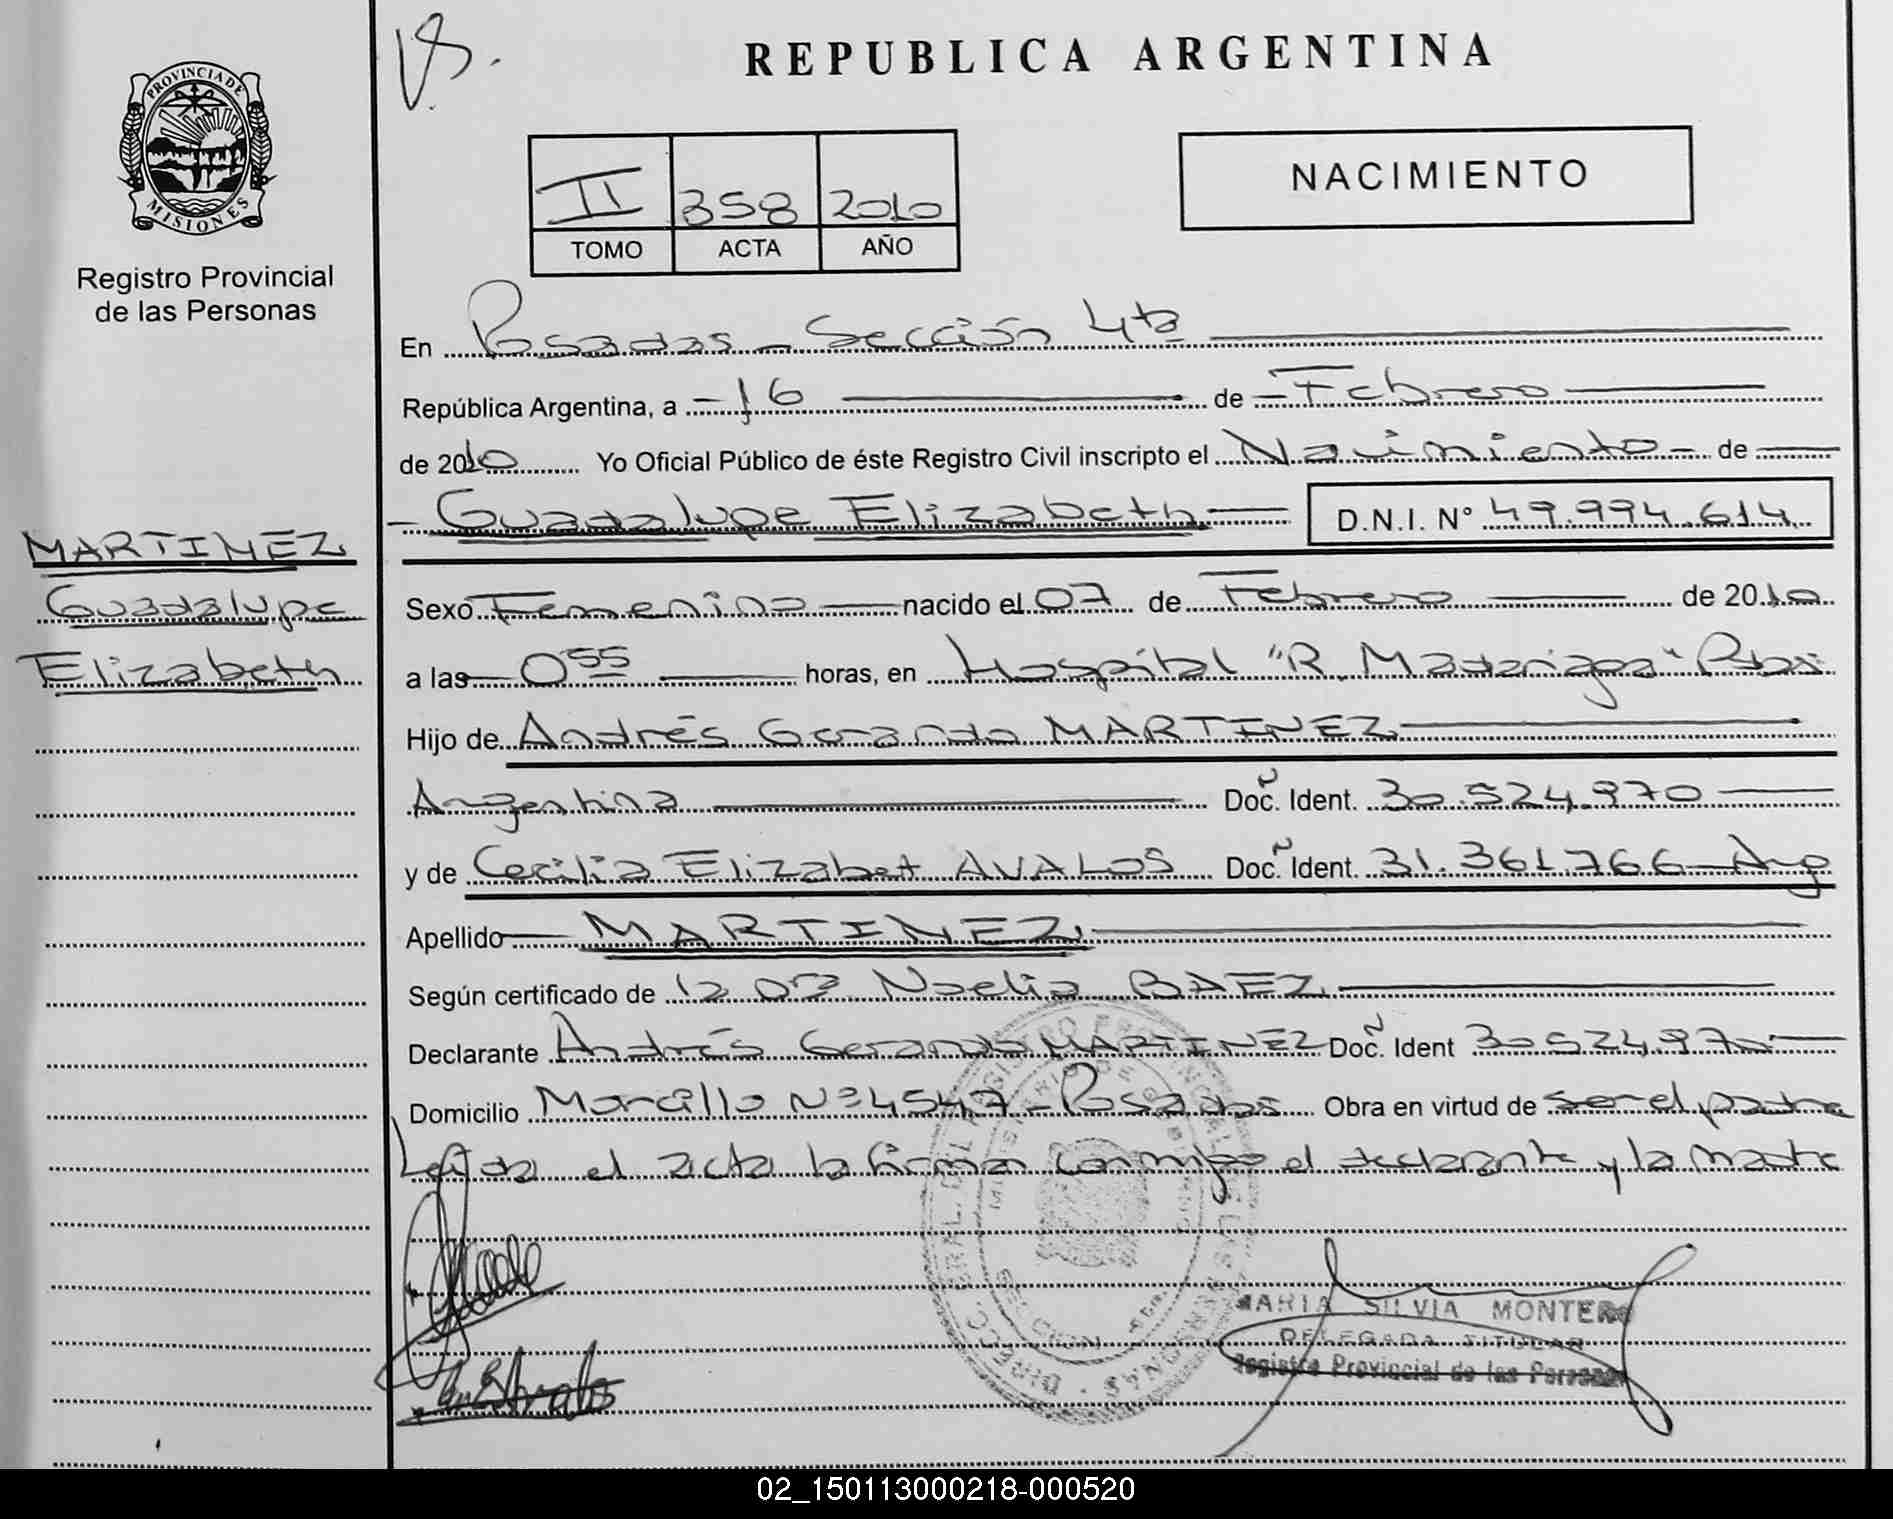 V8.
REPUBLICA ARGENTINA
PROVINCIA DE
MISIONES
Registro Provincial
de las Personas
II 358 2010
TOMO ACTA AÑO
NACIMIENTO
En Posadas - Sección 4ta
República Argentina, a - 16 de - Febrero
de 2010 Yo Oficial Público de éste Registro Civil inscripto el Nacimiento - de
- Guadalupe Elizabeth D.N.I. N° 49.994.614
MARTINEZ
Guadalupe
Elizabeth
Sexo Femenino nacido el 07 de Febrero de 2010
a las 0 55 horas, en Hospital "R. Madariaga" Pdas
Hijo de Andrés Gerardo MARTINEZ
Argentina Doc. Ident. 30.524.970
y de Cecilia Elizabet AVALOS Doc. Ident. 31.361.766 - Arg
Apellido MARTINEZ
Según certificado de Noelia BAEZ
Declarante Andrés Gerardo MARTINEZ Doc. Ident 30.524.970
Domicilio N° 4547 - Posadas Obra en virtud de ser el padre
Leída el acta la firman conmigo el declarante y la madre
MARIA SILVIA MONTERO
DELEGADA TITULAR
Registro Provincial de las Personas
02_150113000218-000520